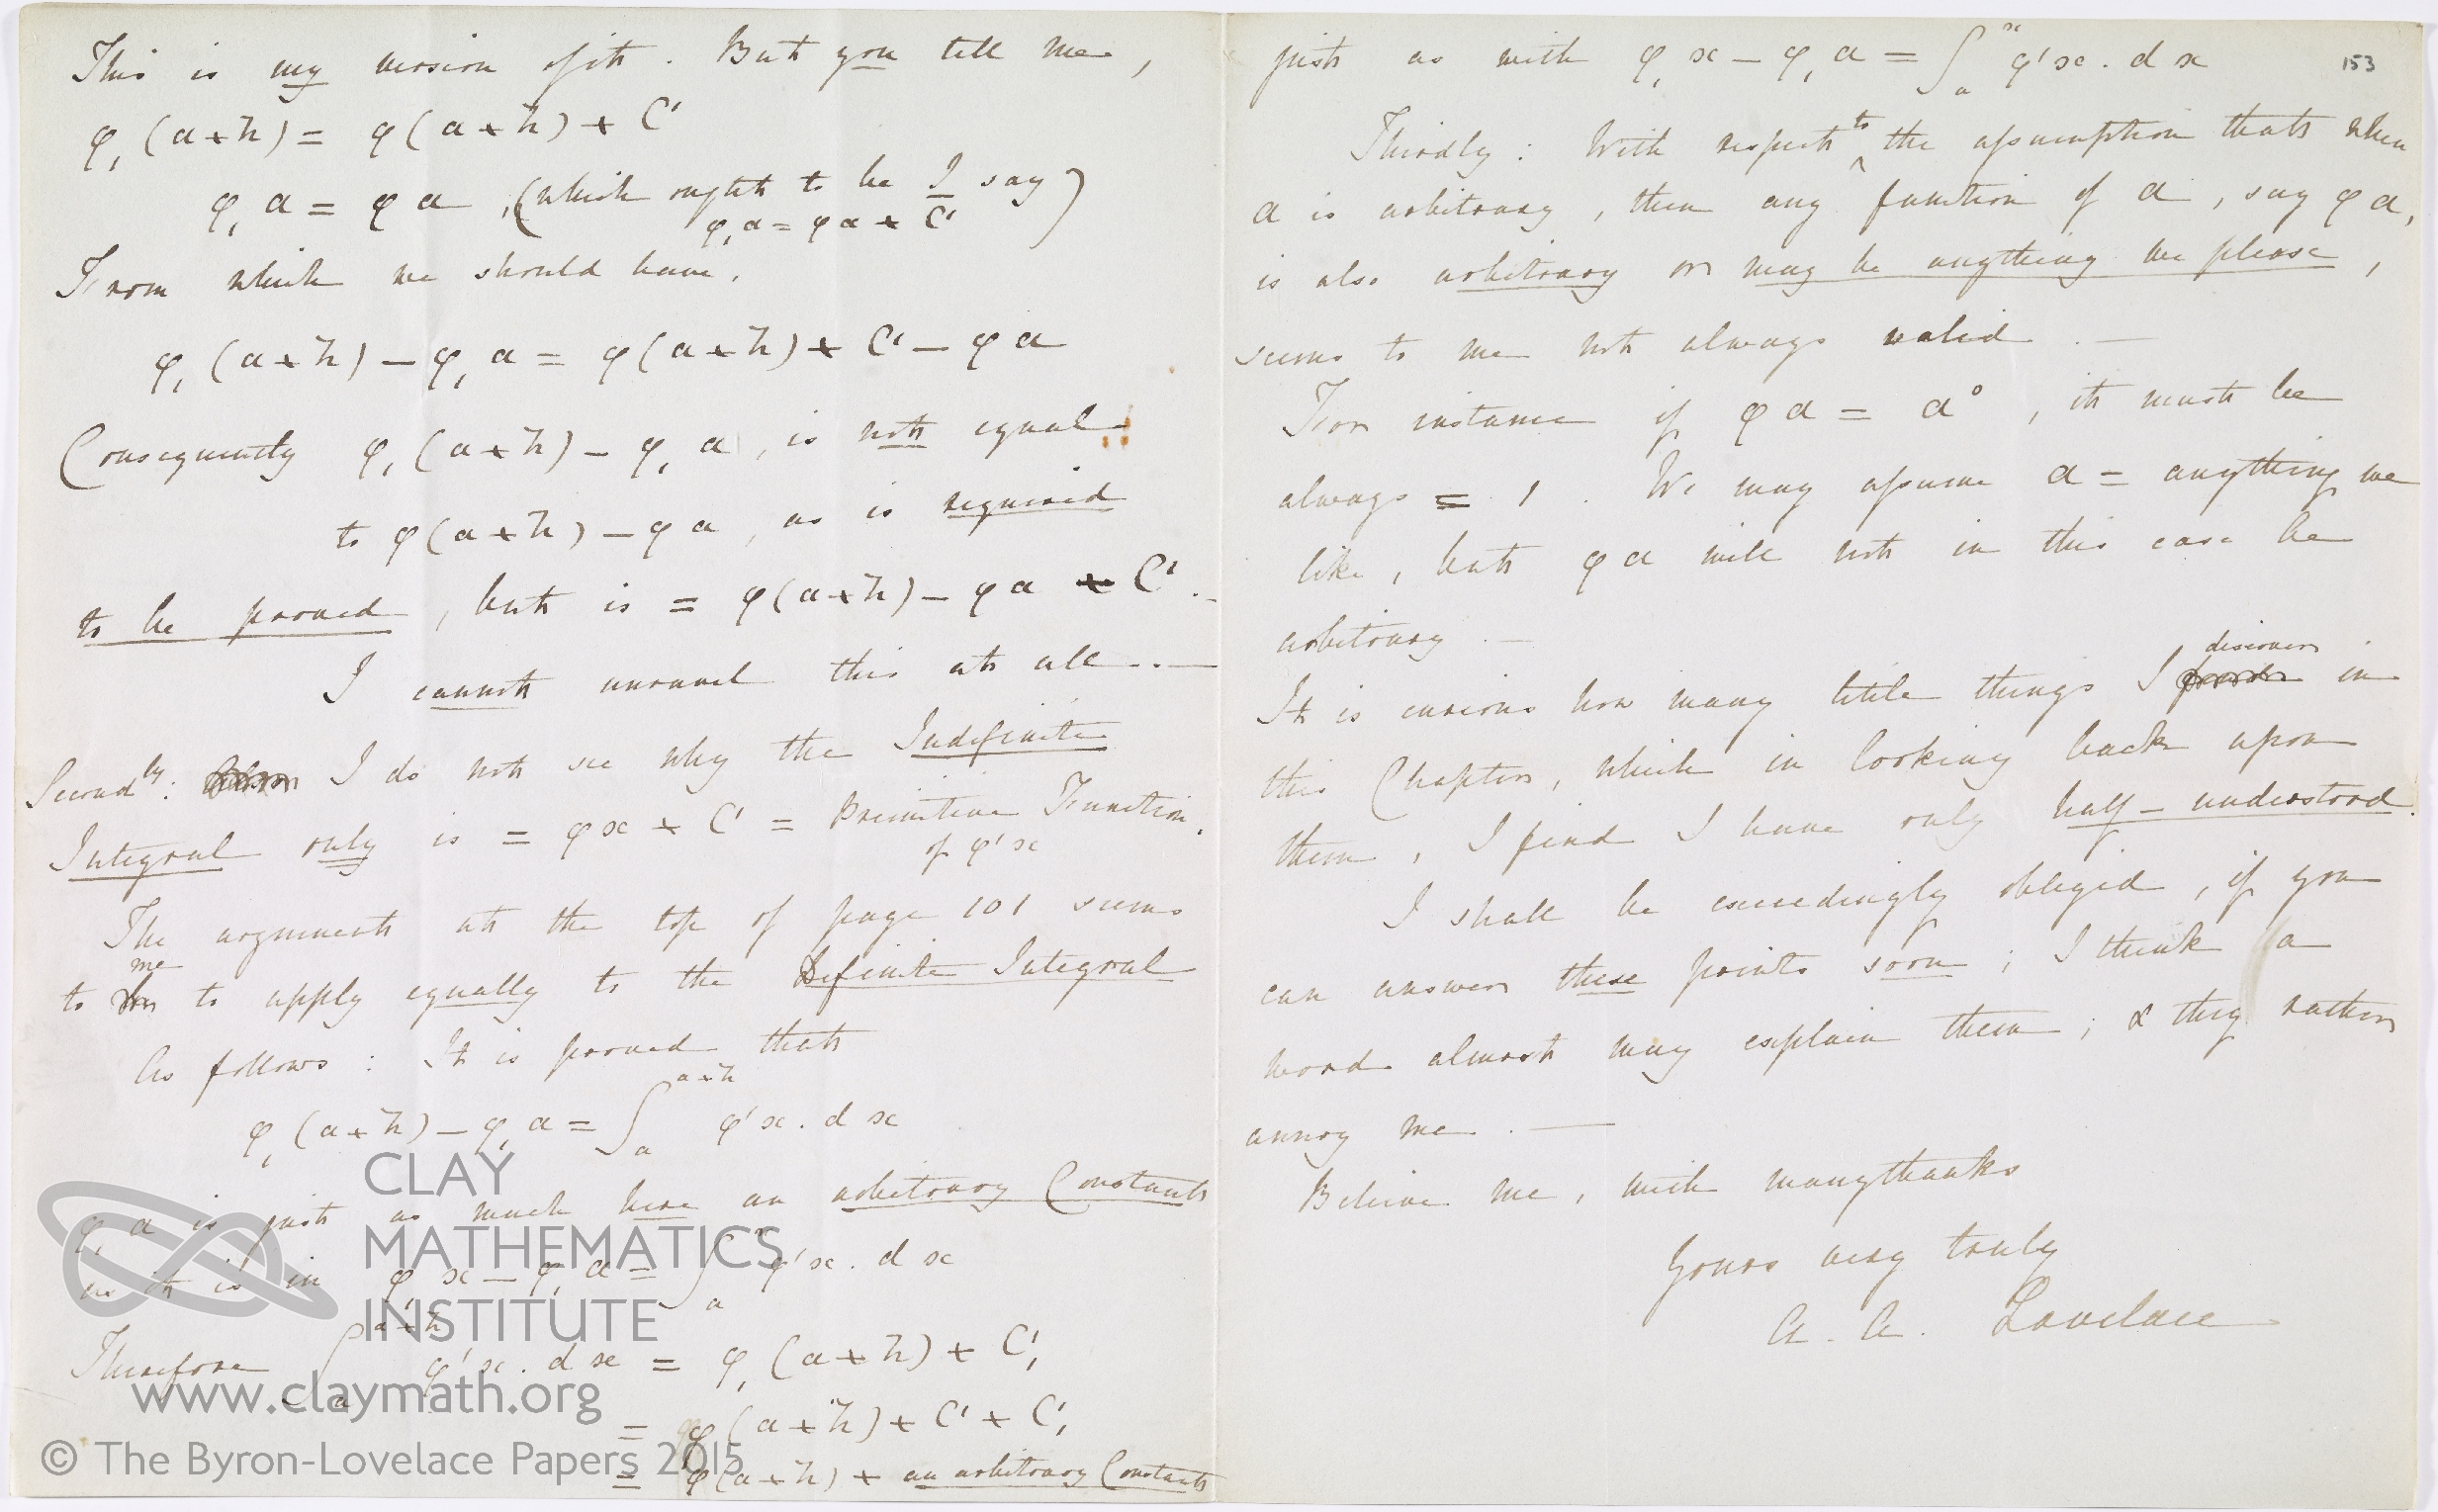 This is my version of it. But you tell me,
φ,(a+h) = φ(a+h) + C'
φ,a = φa, (which ought to be I say
φ,a = φa + C')
From which we should have,
φ,(a+h) − φ,a = φ(a+h) + C' − φa
Consequently φ,(a+h) − φ,a, is not equal
to φ(a+h) − φa, as is required
to be proved, but is = φ(a+h) − φa + C'.–
I cannot unravel this at all..—
Secondly: I do not see why the Indefinite
Integral only is = φx + C' = Primitive Function,
of φ'x
The argument at the top of page 101 seems
me
to to apply equally to the Definite Integral
As follows: It is proved that
φ,(a+h) − φ,a = ∫ₐᵃ⁺ʰ φ'x.dx
φ,a is just as much here an arbitrary Constant
as it is in φ,x − φ,a = ∫ₐˣ φ'x.dx
Therefore ∫ₐᵃ⁺ʰ φ'x.dx = φ,(a+h) + C',
= φ(a+h) + C' + C',
= φ(a+h) + an arbitrary Constant
just as with φ,x − φ,a = ∫ₐˣ φ'x.dx
153
Thirdly: With respect to the assumption that when
a is arbitrary, then any function of a, say φa,
is also arbitrary or may be anything we please,
seems to me not always valid.—
For instance if φa = a⁰, it must be
always = 1. We may assume a = anything we
like, but φa will not in this case be
arbitrary.—
discover
It is curious how many little things I in
this Chapter, which in looking back upon
them, I find I have only half-understood.
I shall be exceedingly obliged, if you
can answer these points soon; I think a
word almost may explain them; & they rather
annoy me.—
Believe me, with many thanks
Yours very truly
A. A. Lovelace
CLAY
MATHEMATICS
INSTITUTE
www.claymath.org
© The Byron-Lovelace Papers 2015